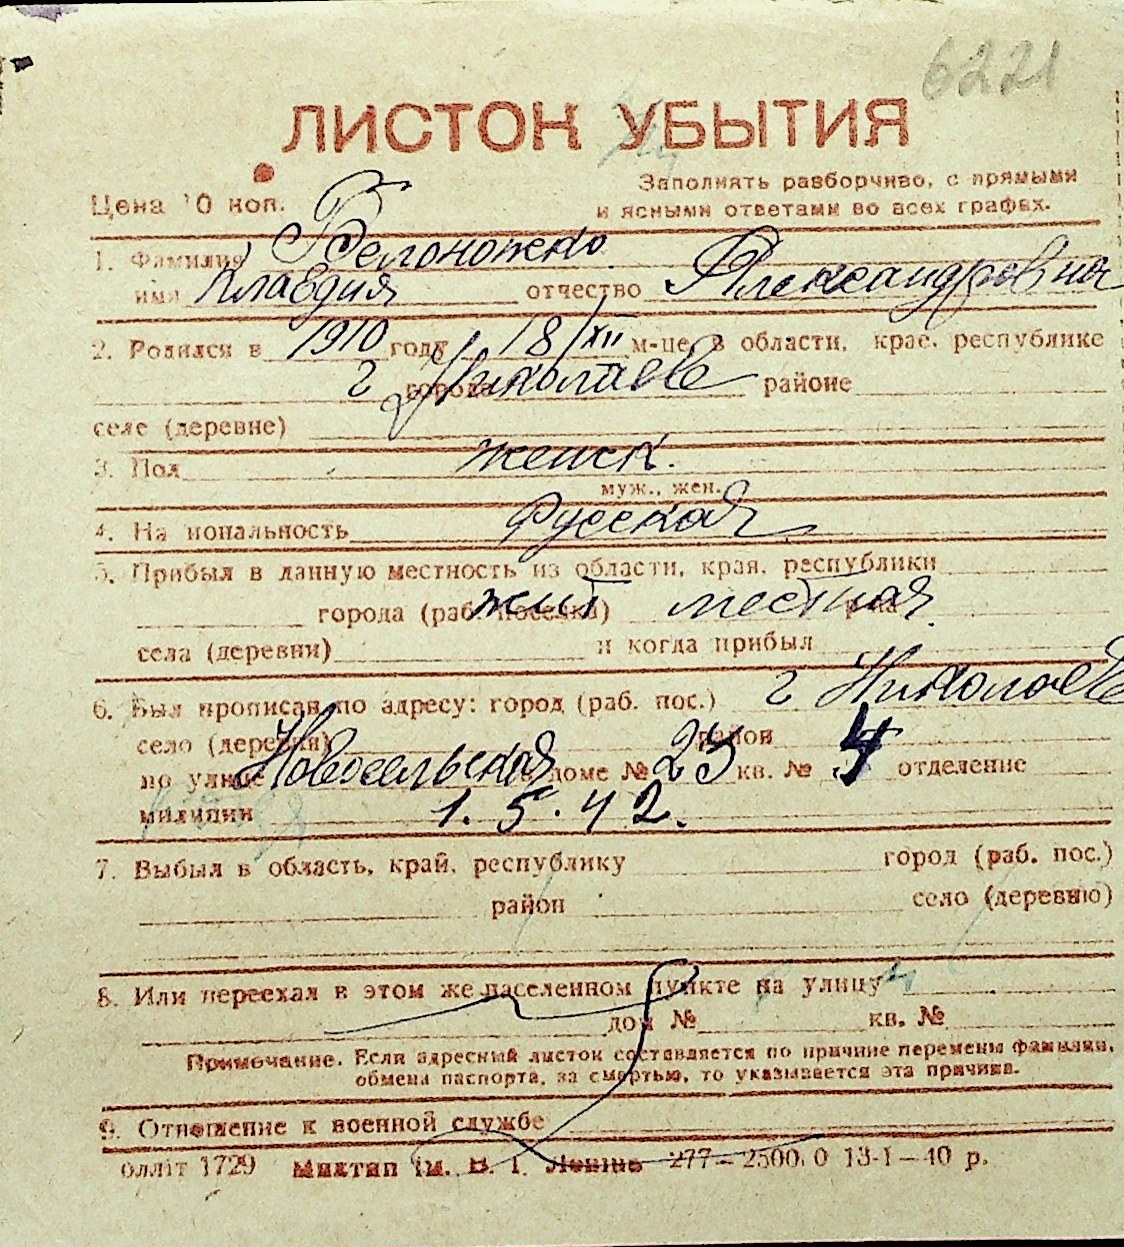 6221
ЛИСТОК УБЫТИЯ
Цена 10 коп.
Заполнять разборчиво, с прямыми
и ясными ответами во всех графах.
1. Фамилия Белоножко
имя Клавдия отчество Александровна
2. Родился в 1910 году 18/XII м-це, в области, крае, республике
г города Николаеве районе
селе (деревне)
3. Пол женск.
муж., жен.
4. На иональность Русская
5. Прибыл в данную местность из области, края, республики
города (раб. поселка) жит местная р-на
села (деревни) и когда прибыл
6. Был прописан по адресу: город (раб. пос.) г Николаеве
село (деревня) район
по улице Новосельская в доме № 23 кв. № 4 отделение
милиции 1.5.42.
7. Выбыл в область, край, республику город (раб. пос.)
район село (деревню)
8. Или переехал в этом же населенном пункте на улицу
дом № кв. №
Примечание. Если адресный листок составляется по причине перемены фамилии,
обмена паспорта, за смертью, то указывается эта причина.
9. Отношение к военной службе
олліт 1729 Миктип ім. В. І. Леніна 277—2500.0 13-I-40 р.